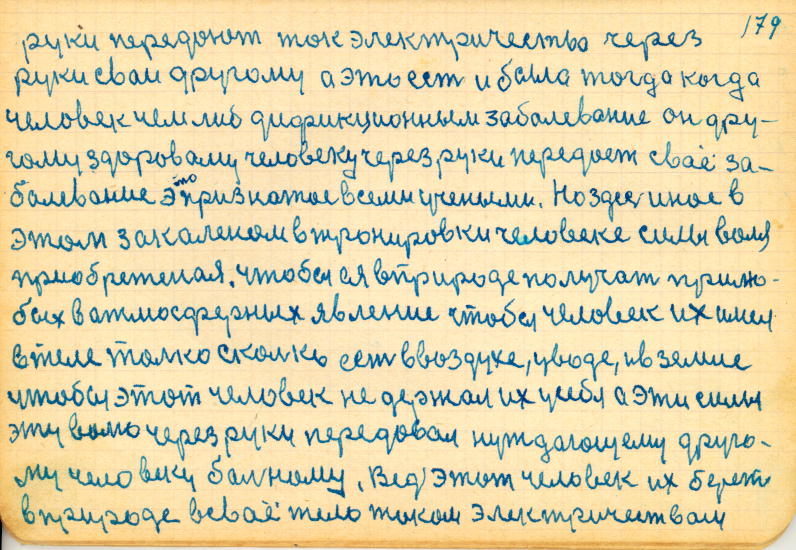 179
руки передоют ток электричество через
руки сваи другому а это ест и была тогда когда
человек чем либ дификционным заболевание он дру-
гому здороваму человеку через руки передоет сваё за-
балевание это признатое всеми учеными. Но здес иное в
этом закаленом в тронировки человеке силы воля
приобретеная. чтобы ея в природе получат при лю-
бых в атмосферных явление чтобы человек их имел
в теле толко сколко ест в воздухе, у воде, и в земле
чтобы этот человек не держал их у себя а эти силы
эту волю через руки передовал нуждающему друго-
му человеку балному. Вед этот человек их берет
в природе в сваё тело током электричеством